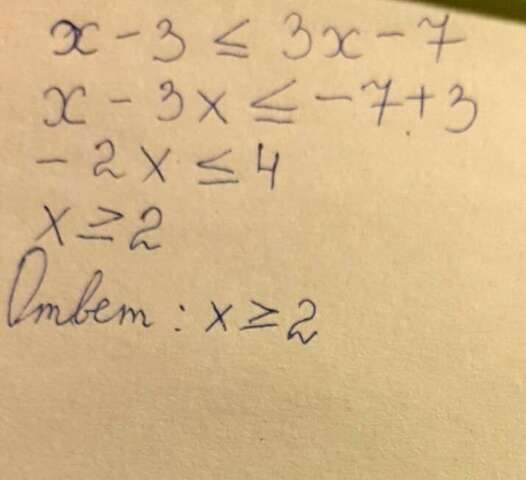 x - 3 ≤ 3x - 7
x - 3x ≤ -7 + 3
- 2x ≤ 4
x ≥ 2
Ответ: x ≥ 2